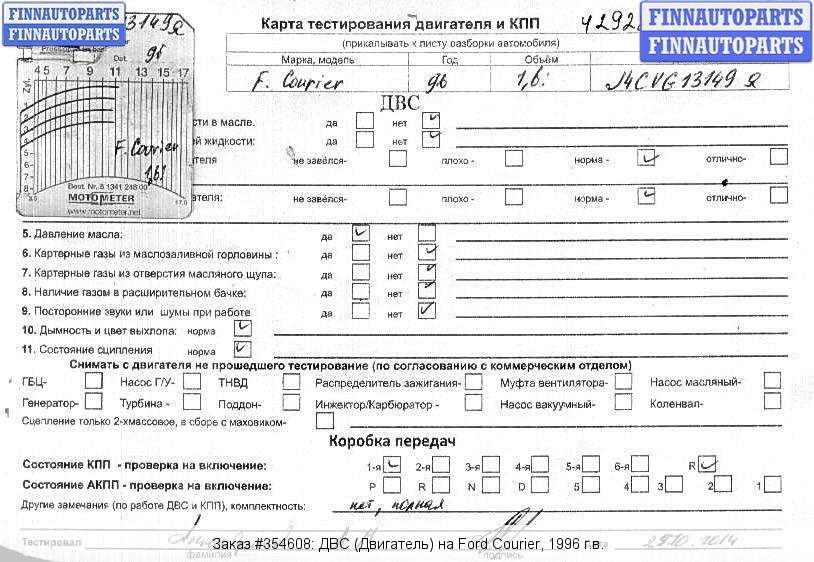 FINNAUTOPARTS
FINNAUTOPARTS
FINNAUTOPARTS
FINNAUTOPARTS
Карта тестирования двигателя и КПП
(прикалывать к листу разборки автомобиля)
Марка, модель Год Объём
F. Courier 96 1,6i
ДВС
4 5 7 9 11 13 15 17
F. Courier
1,6i
Best. Nr. 5 1341 248 00
MOTOMETER
www.motometer.net
сти в масле. да нет
ей жидкости: да нет
ателя не завёлся- плохо - норма - отлично-
ателя: не завёлся- норма - отлично-
5. Давление масла: да нет
6. Картерные газы из маслозаливной горловины : да нет
7. Картерные газы из отверстия масляного щупа: да нет
8. Наличие газом в расширительном бачке: да нет
9. Посторонние звуки или шумы при работе да нет
10. Дымность и цвет выхлопа: норма
11. Состояние сципления норма
Снимать с двигателя не прошедшего тестирование (по согласованию с коммерческим отделом)
ГБЦ- Насос Г/У- ТНВД Распределитель зажигания- Муфта вентилятора- Насос масляный-
Генератор- Турбина - Поддон- Инжектор/Карбюратор - Насос вакуумный- Коленвал-
Сцепление только 2-хмассовое, в сборе с маховиком-
Коробка передач
Состояние КПП - проверка на включение: 1-я 2-я 3-я 4-я 5-я 6-я R
Состояние АКПП - проверка на включение: P R N D 5 4 3 2 1
Другие замечания (по работе ДВС и КПП), комплектность: нет, полная
Тестировал
фамилия подпись
Заказ #354608: ДВС (Двигатель) на Ford Courier, 1996 г.в.